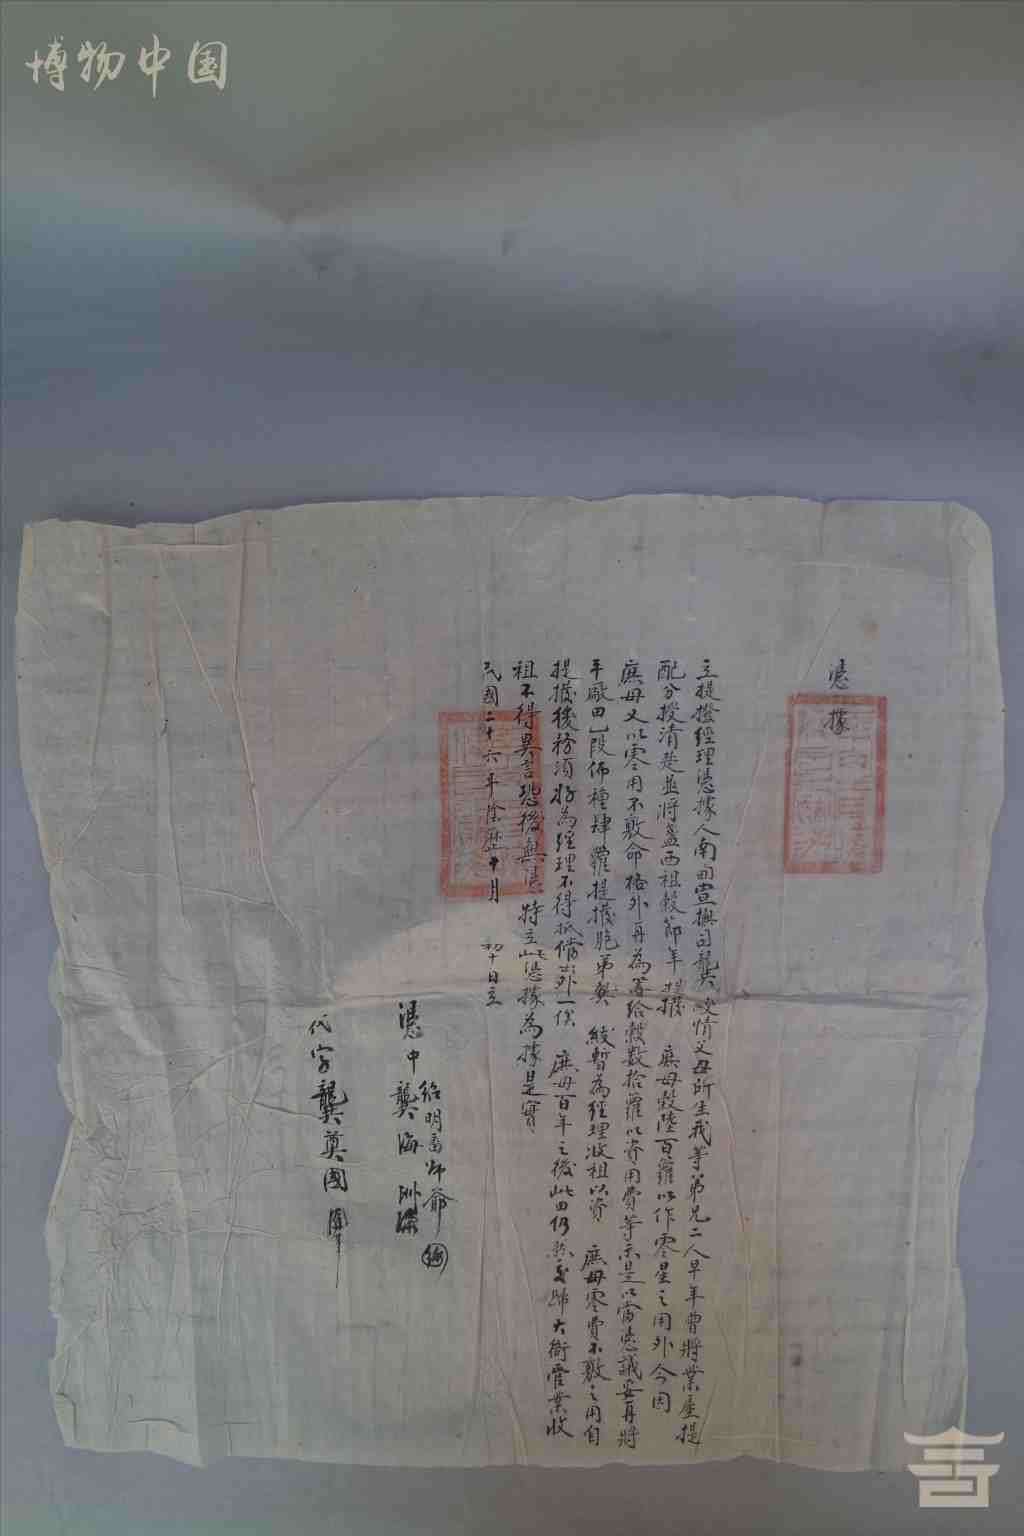 博物中国
憑據
立提撥經理憑據人南甸宣撫司龔 綬情父母所生我等弟兄二人早年曾將業屋提
配分授清楚並將盞西租穀節年提撥 庶母穀陸百籮以作零星之用外今因
庶母又以零用不敷命格外再為籌給穀數拾籮以資用費等示是以當憑誠妥再將
厰田一段佈種肆籮提撥胞弟龔 綬暫為經理收租以資 庶母零費不敷之用自
提撥後務須好為經理不得抵借出外一俟 庶母百年之後此田仍然交歸大衙管業收
租不得異言恐後無憑特立此憑據為據是實
民國二十六年陰歷十月 初十日立
憑中 紹明 師爺
龔海洲
代字龔奠國